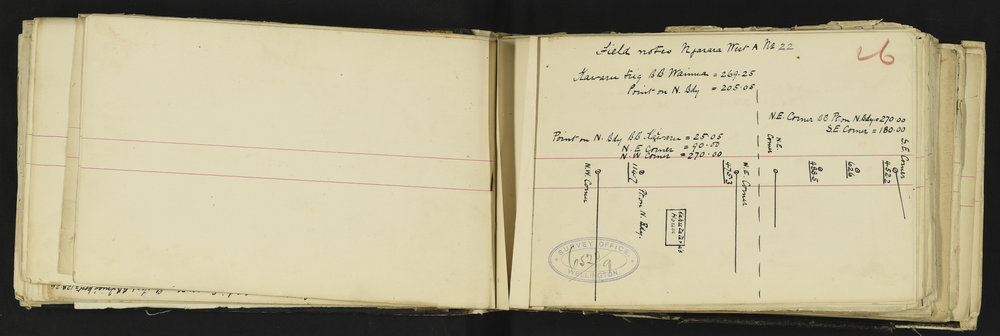 Field notes Ngarara West A No 22
26
Kawaru Trig BB Wainui = 269.25
Point on N. Bdy = 205.05
N.E. Corner BB Pt on N. Bdy = 270.00
S.E. Corner = 180.00
Point on N. Bdy BB Kawaru = 25.05
N. E Corner = 90.00
N. W Corner = 270.00
N.W. Corner
1147
Pt on N. Bdy.
4753
N.E. Corner
N.E. Corner
4885
626
4522
S.E. Corner
House
SURVEY OFFICE
WELLINGTON